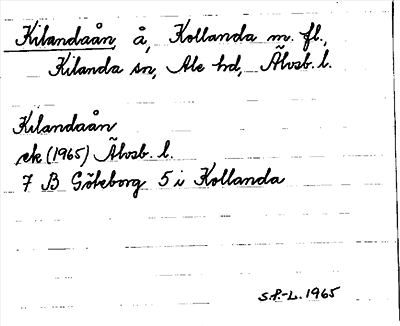 Kilandaån, å, Kollanda m. fl.,
Kilanda sn, Ale hd, Älvsb. l.
Kilandaån
ek (1965) Älvsb. l.
7 B Göteborg 5 i Kollanda
S.P.-L. 1965